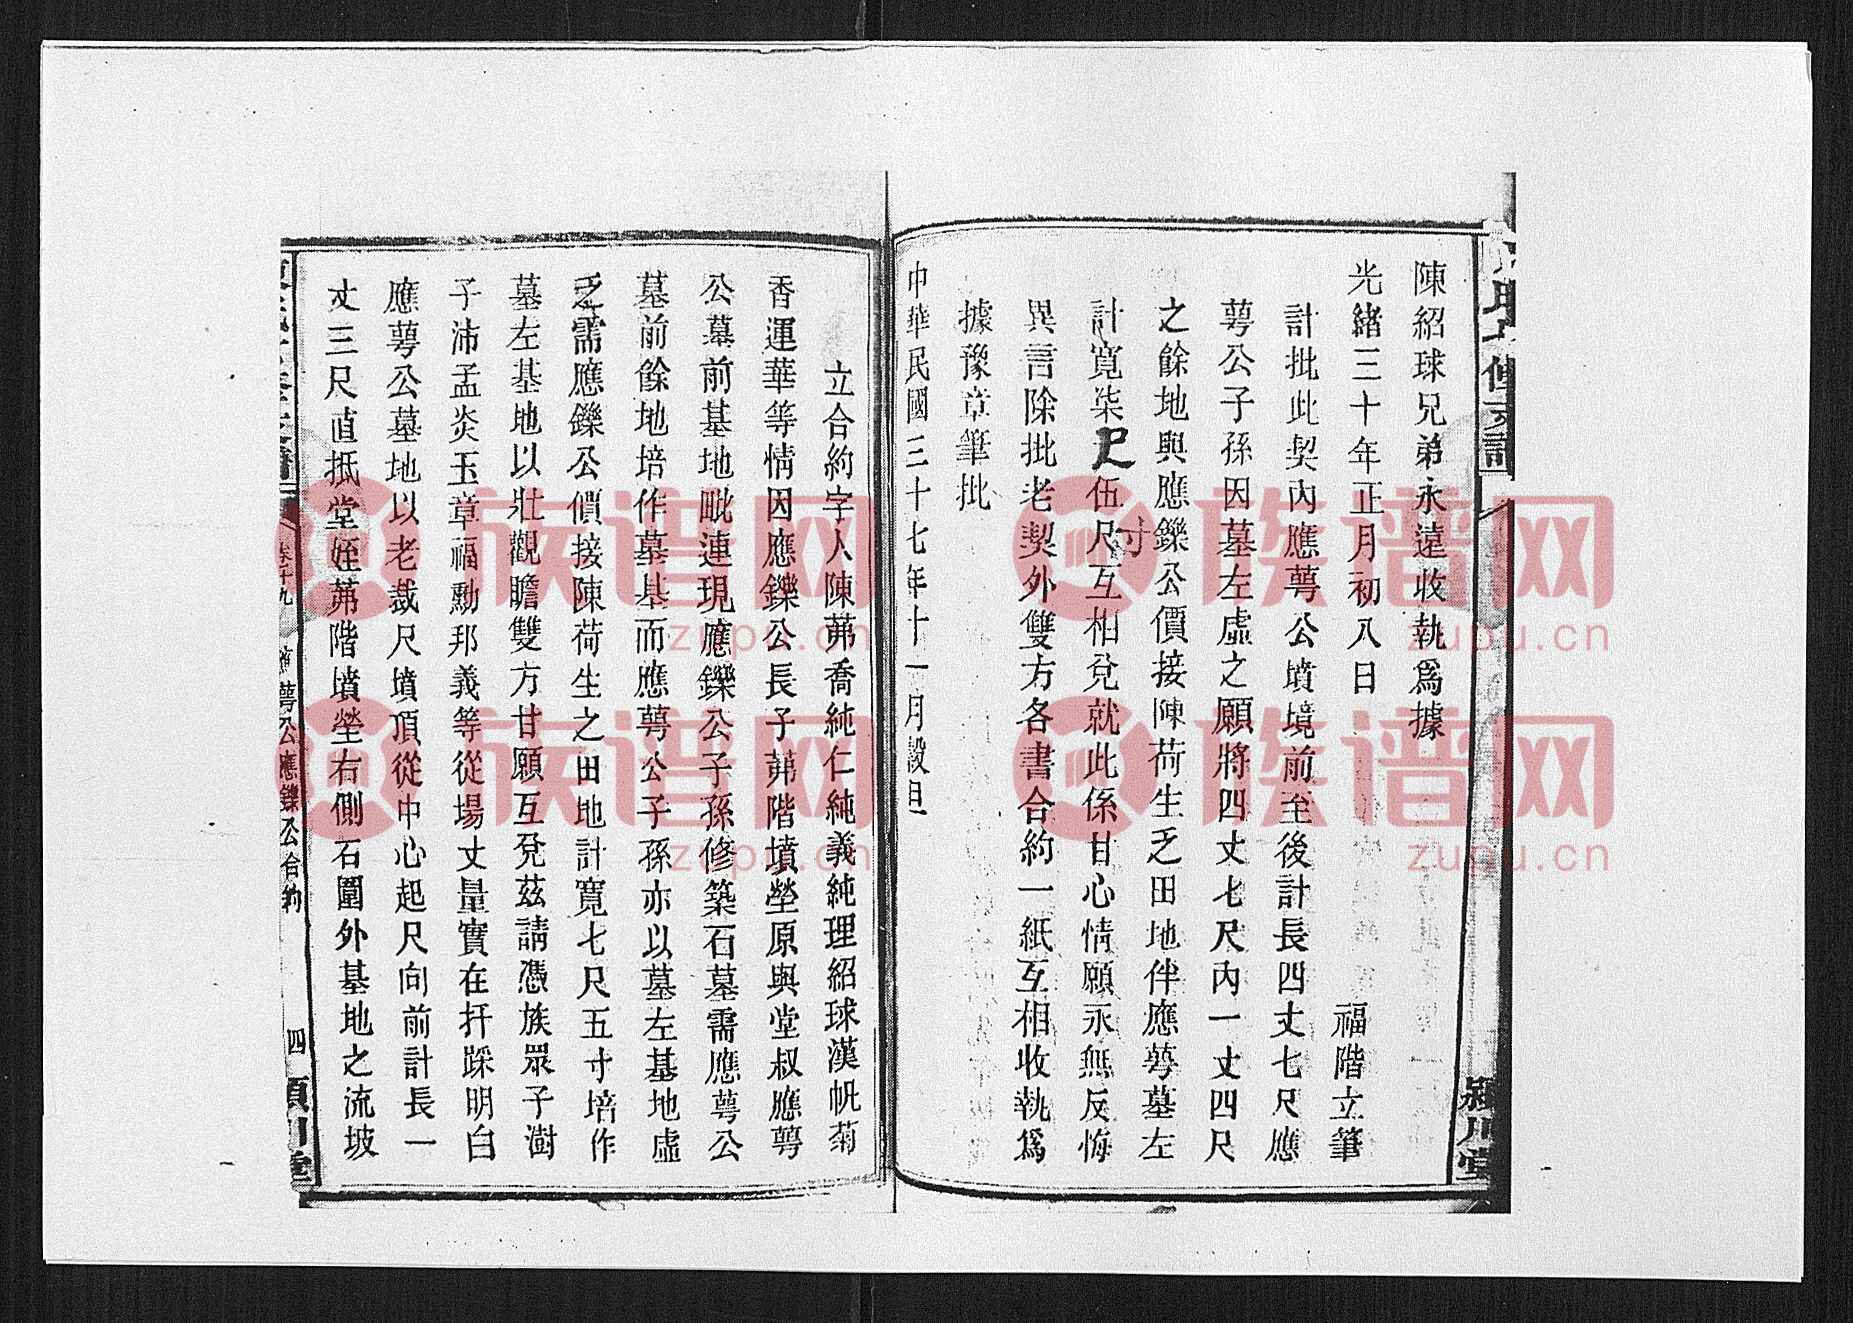 陳紹球兄弟永遠收執爲據
光緒三十年正月初八日
福階立筆
計批此契內應蕚公墳境前至後計長四丈七尺應
蕚公子孫因墓左虛之願將四丈七尺內一丈四尺
之餘地與應鑠公價接陳荷生乏田地伴應蕚墓左
計寬柒尺伍寸互相兌就此係甘心情願永無反悔
異言除批老契外雙方各書合約一紙互相收執爲
據豫章筆批
中華民國三十七年十一月穀旦
潁川堂
立合約字人陳茀喬純仁純義純理紹球漢帆菊
香運華等情因應鑠公長子茀階墳塋原與堂叔應蕚
公墓前基地毗連現應鑠公子孫修築石墓需應蕚公
墓前餘地培作墓基而應蕚公子孫亦以墓左基地虛
乏需應鑠公價接陳荷生之田地計寬七尺五寸培作
墓左基地以壯觀瞻雙方甘願互兌茲請憑族眾子澍
子沛孟炎玉章福勳邦義等從場丈量實在扦踩明白
應蕚公墓地以老裁尺墳頂從中心起尺向前計長一
丈三尺直抵堂姪茀階墳塋右側石圍外基地之流坡
卷十九
應蕚公應鑠公合約
四
潁川堂
族谱网
zupu.cn
族谱网
zupu.cn
族谱网
zupu.cn
族谱网
zupu.cn